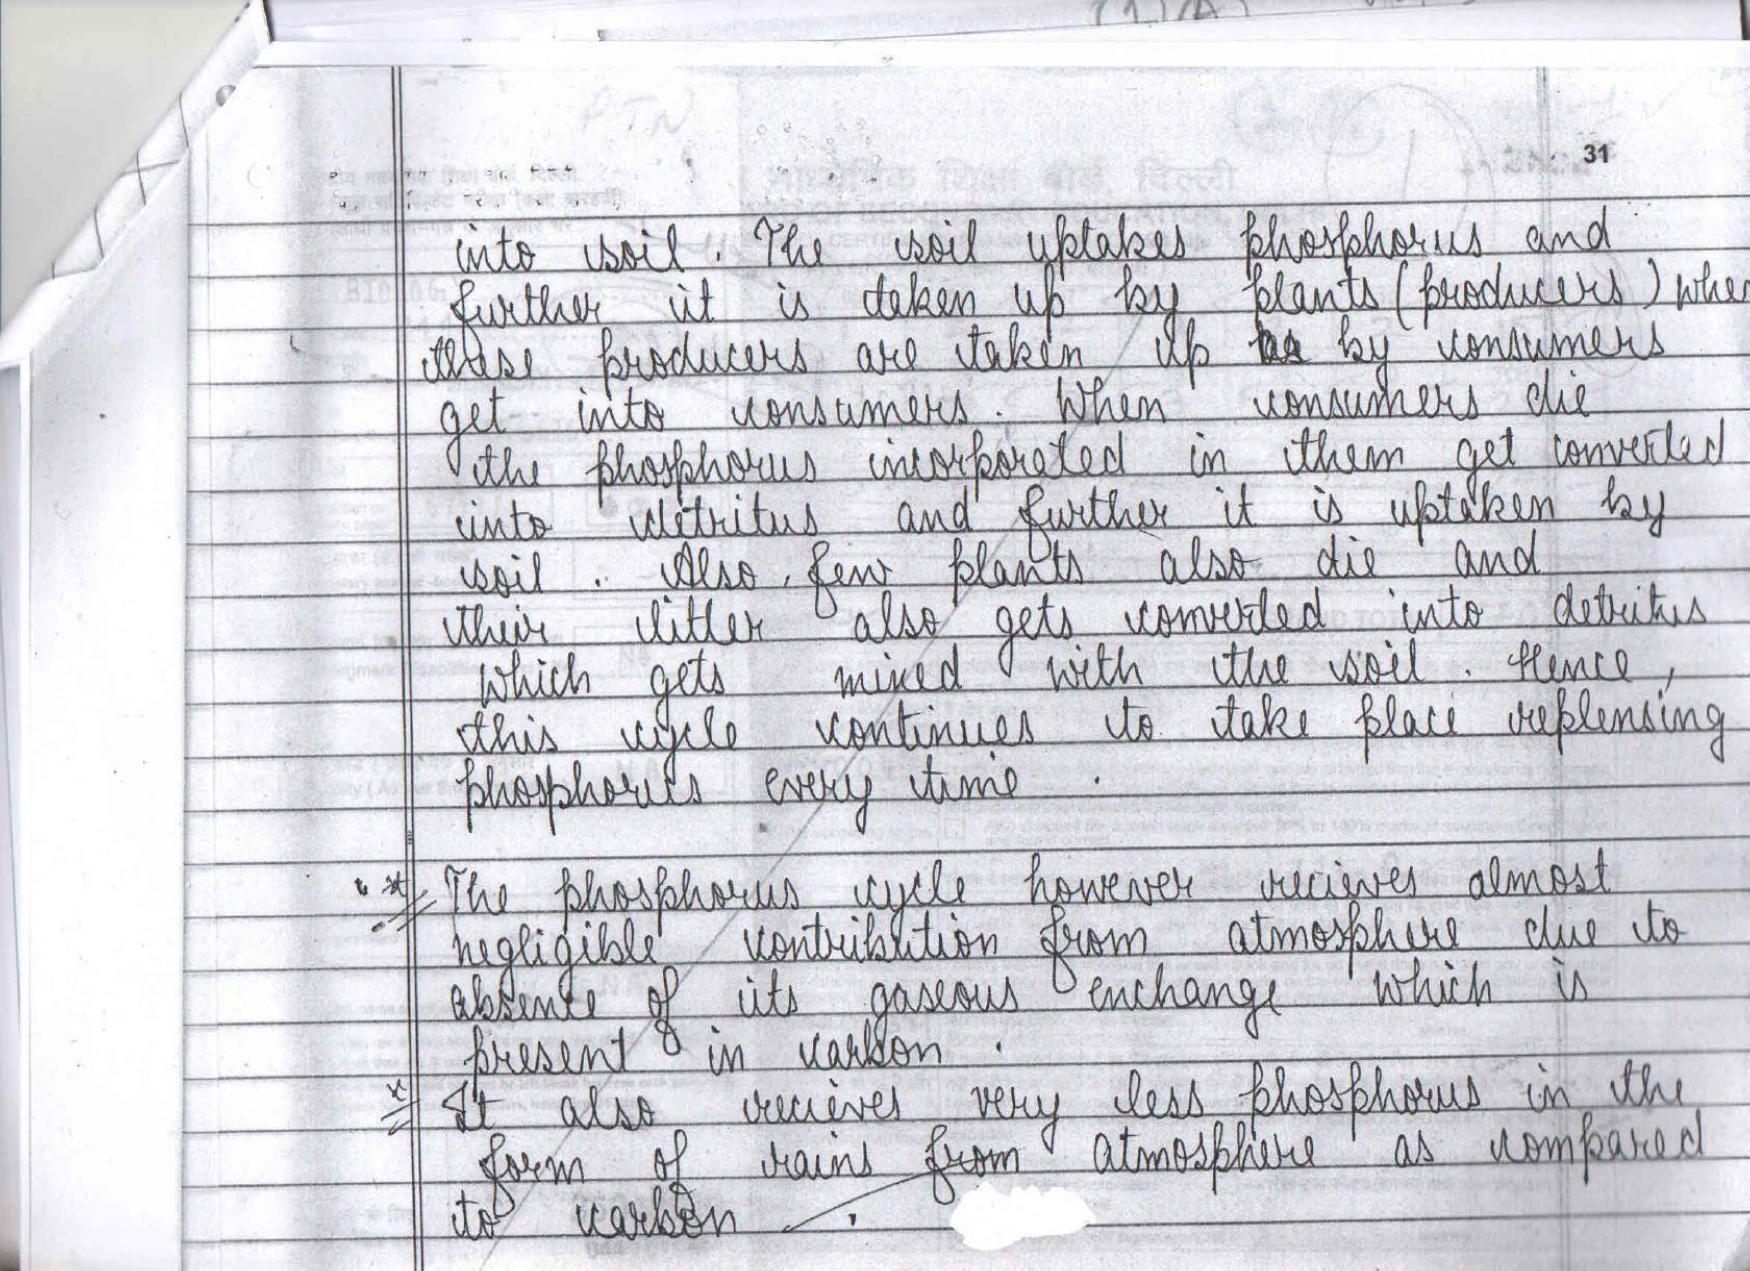 31
into soil. The soil uptakes phosphorus and
further it is taken up by plants (producers) when
these producers are taken up by consumers
get into consumers. When consumers die
the phosphorus incorporated in them get converted
into detritus and further it is uptaken by
soil. Also, few plants also die and
their litter also gets converted into detritus
which gets mixed with the soil. Hence,
this cycle continues to take place replensing
phosphorus every time.
* The phosphorus cycle however recieves almost
negligible contribution from atmosphere due to
absence of its gaseous exchange which is
present in carbon.
* It also recieves very less phosphorus in the
form of rains from atmosphere as compared
to carbon.